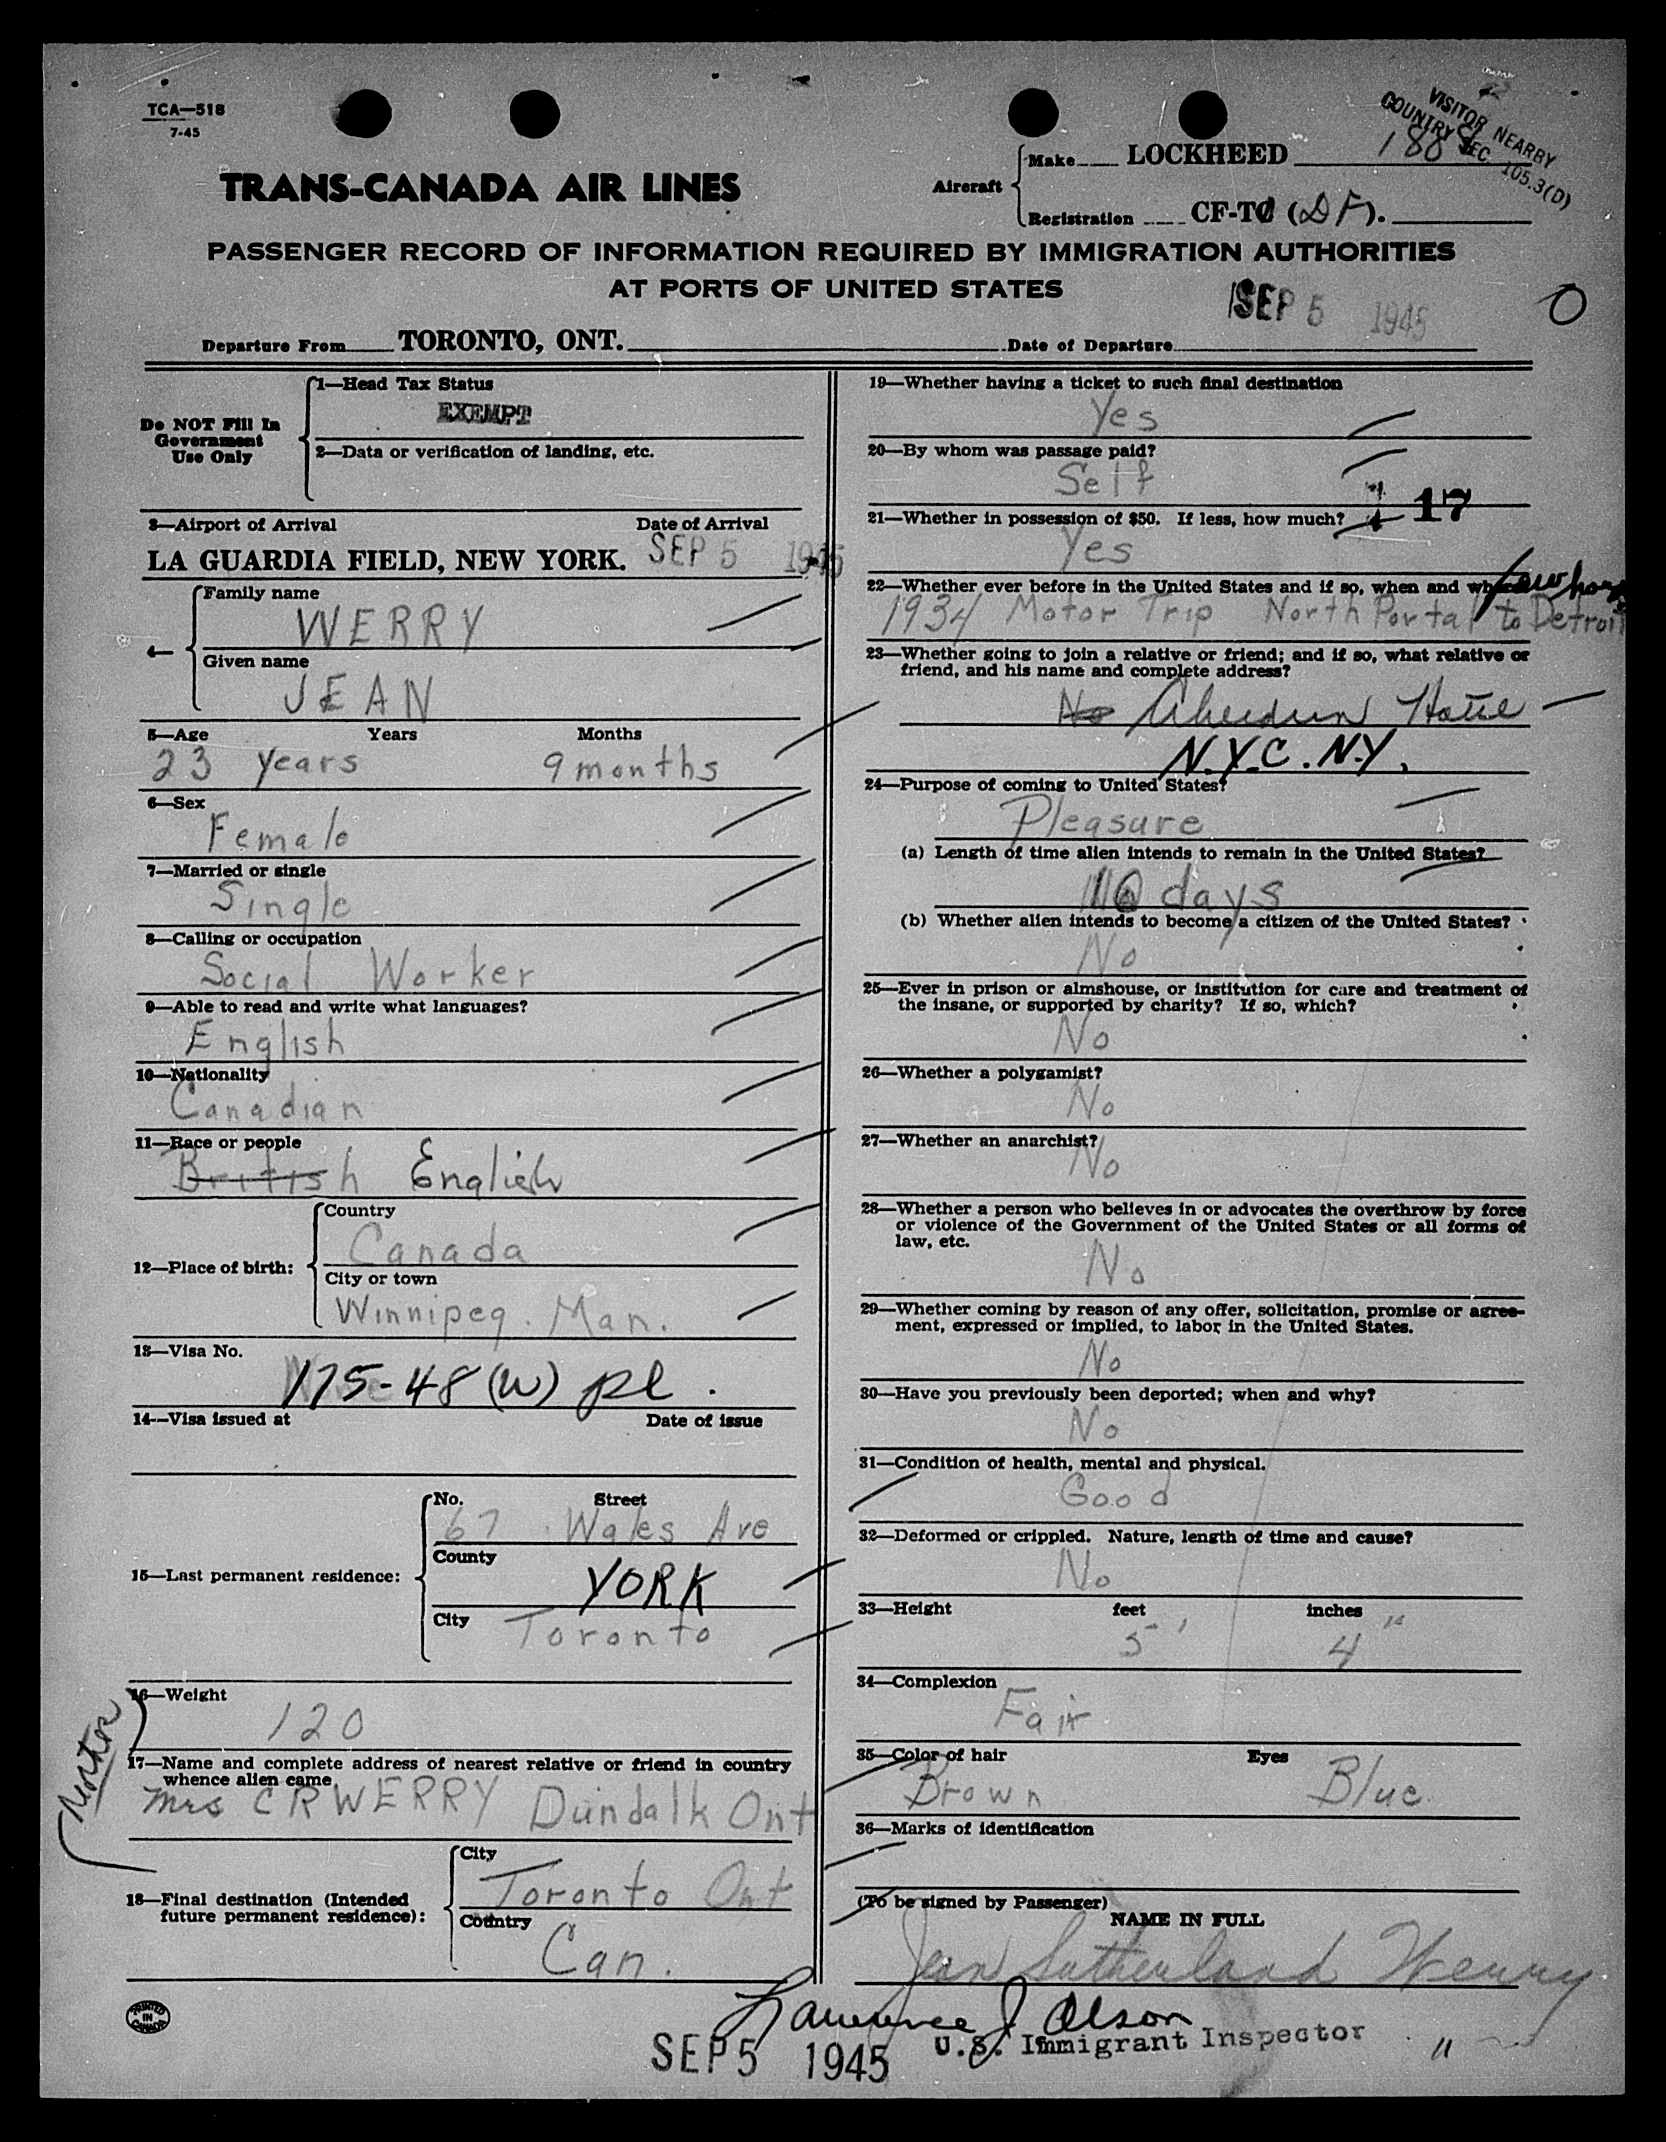 TCA—518
7-45
VISITOR NEARBY
COUNTRY SEC. 105.3(D)
TRANS-CANADA AIR LINES
Aircraft
Make LOCKHEED
Registration CF-TC (DF).
PASSENGER RECORD OF INFORMATION REQUIRED BY IMMIGRATION AUTHORITIES
AT PORTS OF UNITED STATES
SEP 5 1945
Departure From TORONTO, ONT. Date of Departure
Do NOT Fill In
Government
Use Only
1—Head Tax Status
EXEMPT
2—Data or verification of landing, etc.
3—Airport of Arrival Date of Arrival
LA GUARDIA FIELD, NEW YORK. SEP 5 1945
4—
Family name
WERRY
Given name
JEAN
5—Age Years Months
23 years 9 months
6—Sex
Female
7—Married or single
Single
8—Calling or occupation
Social Worker
9—Able to read and write what languages?
English
10—Nationality
Canadian
11—Race or people
British English
12—Place of birth:
Country
Canada
City or town
Winnipeg. Man.
13—Visa No.
175-48 (W) pl.
14—Visa issued at Date of issue
15—Last permanent residence:
No. Street
67 Wales Ave
County
YORK
City
Toronto
16—Weight
120
Mother
17—Name and complete address of nearest relative or friend in country
whence alien came
Mrs C R WERRY Dundalk Ont
18—Final destination (Intended
future permanent residence):
City
Toronto Ont
Country
Can.
19—Whether having a ticket to such final destination
Yes
20—By whom was passage paid?
Self
17
21—Whether in possession of $50. If less, how much?
Yes
22—Whether ever before in the United States and if so, when and where?
few hours
1934 Motor Trip North Portal to Detroit
23—Whether going to join a relative or friend; and if so, what relative or
friend, and his name and complete address?
No Aberdeen Hotel
N.Y.C. N.Y.
24—Purpose of coming to United States?
Pleasure
(a) Length of time alien intends to remain in the United States?
10 days
(b) Whether alien intends to become a citizen of the United States?
No
25—Ever in prison or almshouse, or institution for care and treatment of
the insane, or supported by charity? If so, which?
No
26—Whether a polygamist?
No
27—Whether an anarchist?
No
28—Whether a person who believes in or advocates the overthrow by force
or violence of the Government of the United States or all forms of
law, etc.
No
29—Whether coming by reason of any offer, solicitation, promise or agree-
ment, expressed or implied, to labor in the United States.
No
30—Have you previously been deported; when and why?
No
31—Condition of health, mental and physical.
Good
32—Deformed or crippled. Nature, length of time and cause?
No
33—Height feet inches
5' 4"
34—Complexion
Fair
35—Color of hair Eyes
Brown Blue
36—Marks of identification
(To be signed by Passenger)
NAME IN FULL
Jean Sutherland Werry
PRINTED
IN
CANADA
Lawrence J Olson
SEP 5 1945 U.S. Immigrant Inspector